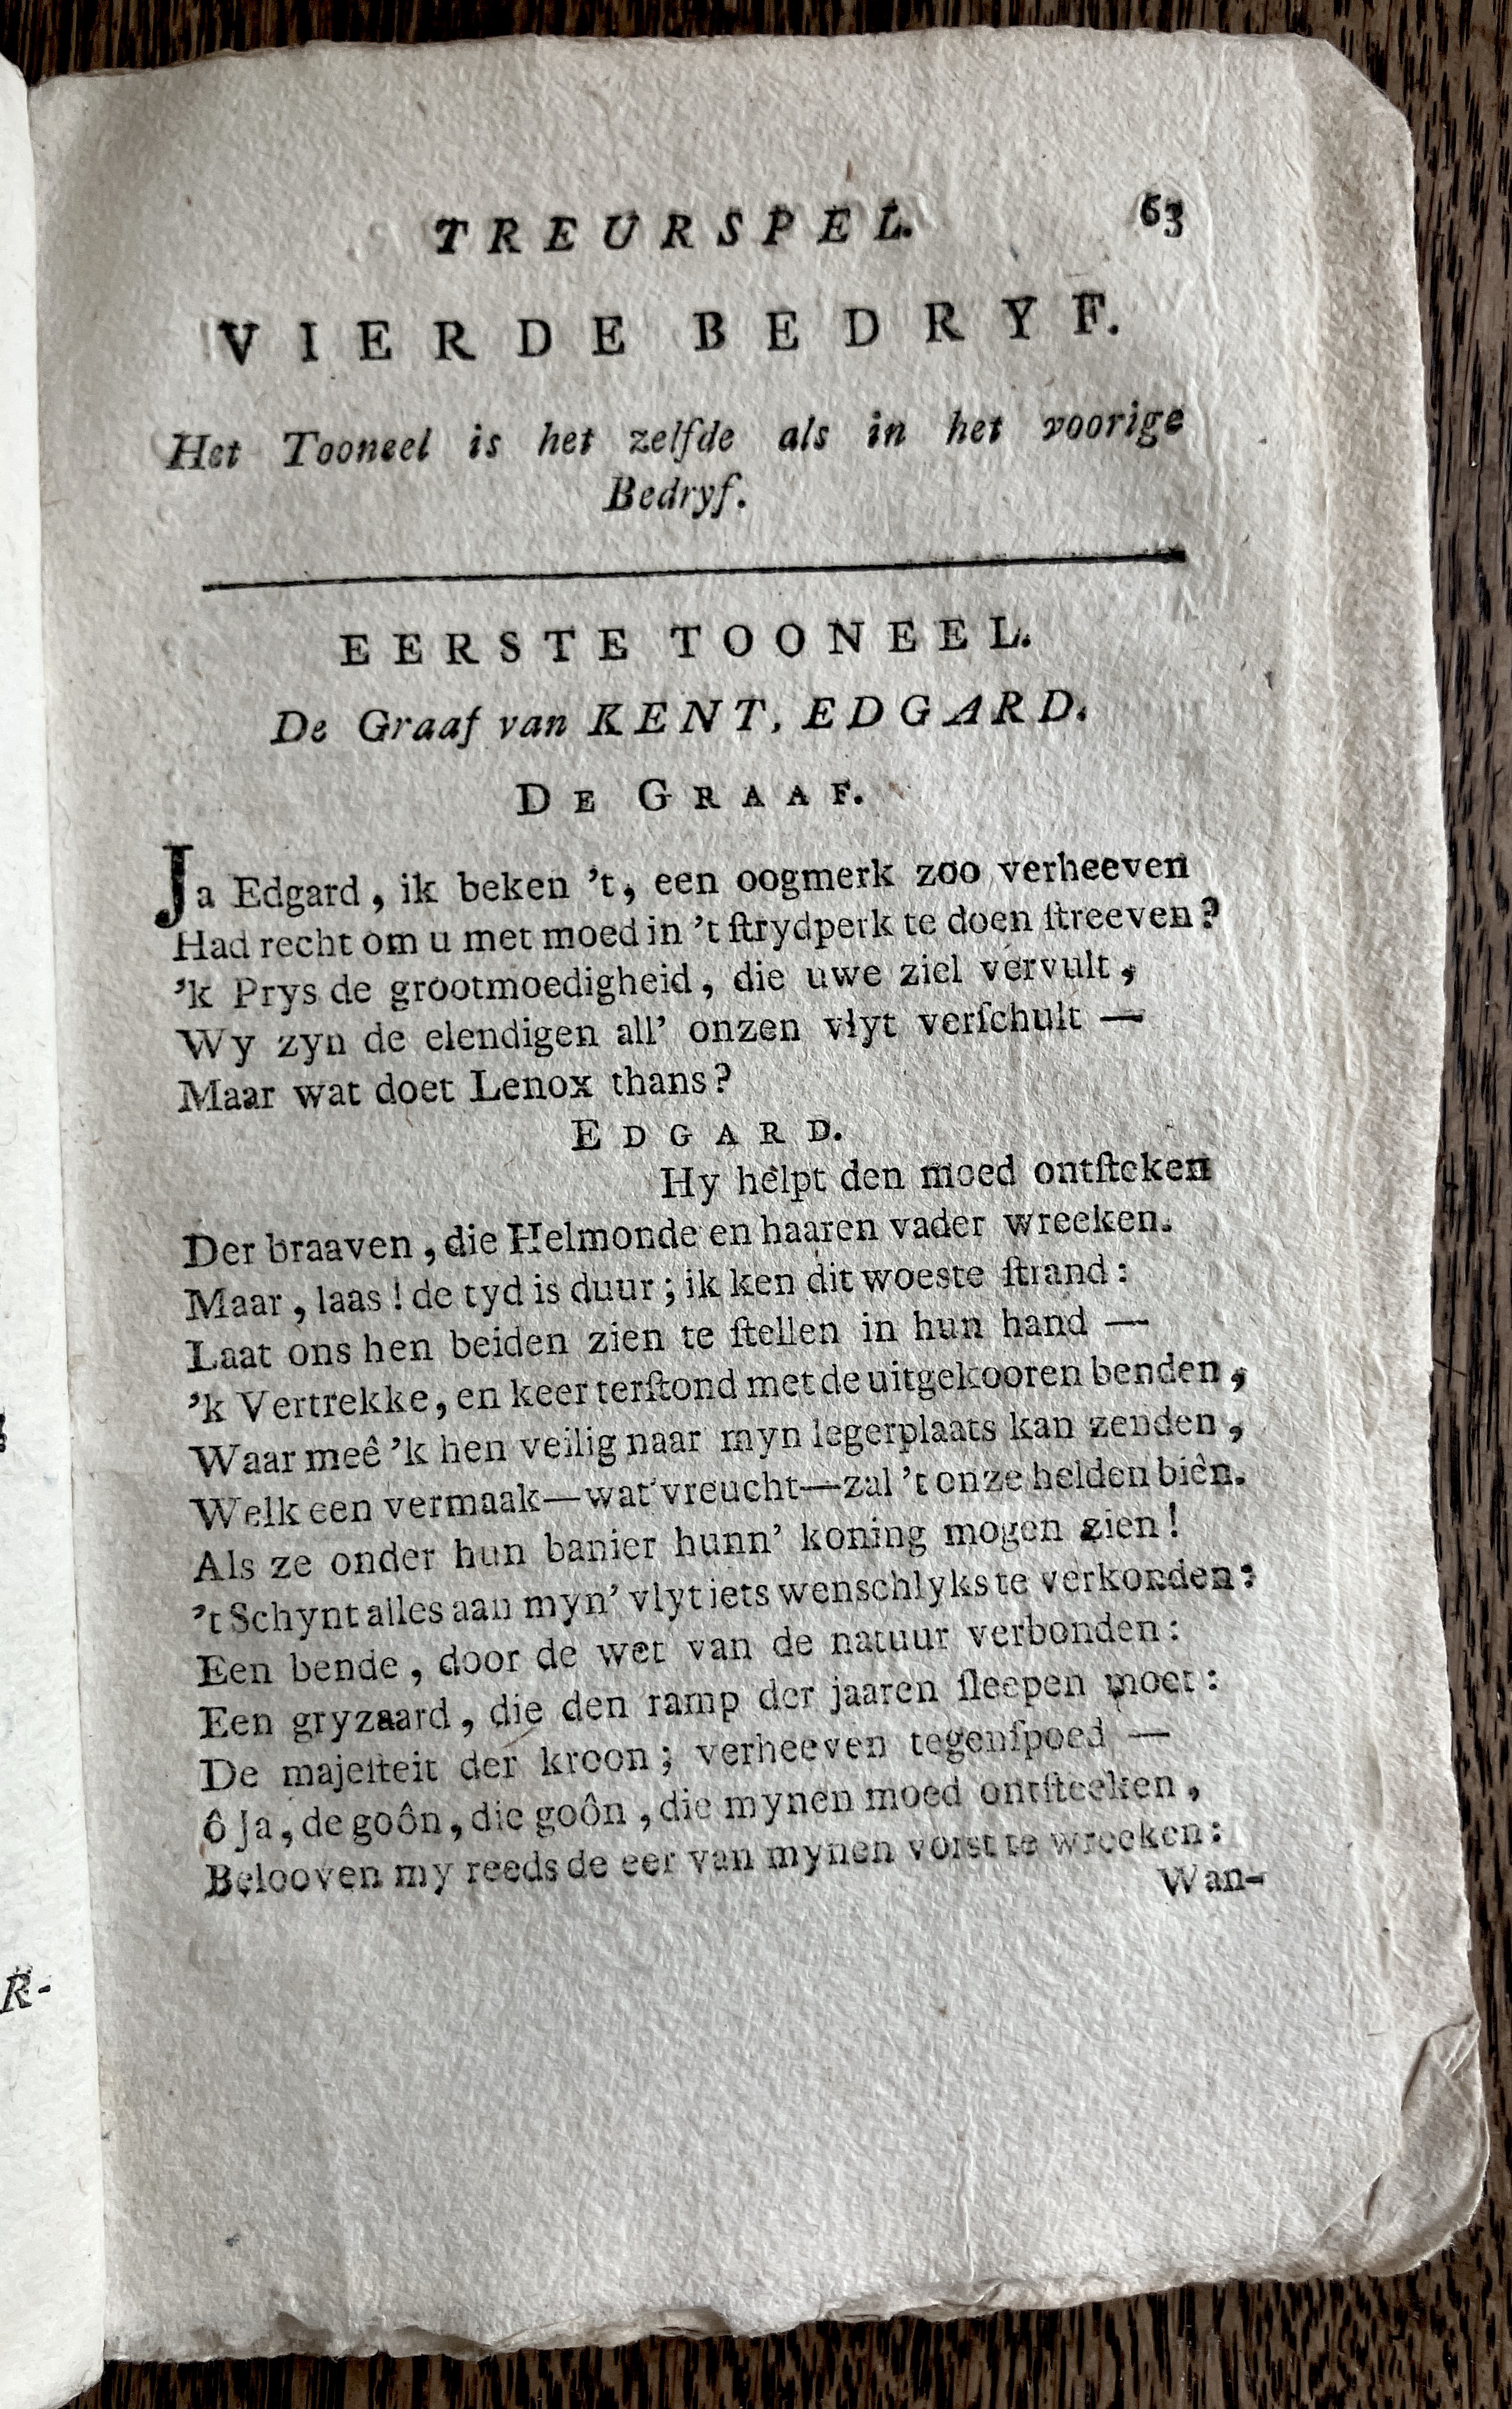 TREURSPEL. 63
VIERDE BEDRYF.
Het Tooneel is het zelfde als in het voorige
Bedryf.
EERSTE TOONEEL.
De Graaf van KENT, EDGARD.
DE GRAAF.
Ja Edgard, ik beken 't, een oogmerk zoo verheeven
Had recht om u met moed in 't ſtrydperk te doen ſtreeven?
'k Prys de grootmoedigheid, die uwe ziel vervult,
Wy zyn de elendigen all' onzen vlyt verſchult —
Maar wat doet Lenox thans?
EDGARD.
Hy helpt den moed ontſteken
Der braaven, die Helmonde en haaren vader wreeken.
Maar, laas! de tyd is duur; ik ken dit woeste ſtrand:
Laat ons hen beiden zien te ſtellen in hun hand —
'k Vertrekke, en keer terſtond met de uitgekooren benden,
Waar meê 'k hen veilig naar myn legerplaats kan zenden,
Welk een vermaak—wat vreucht—zal 't onze helden biên.
Als ze onder hun banier hunn' koning mogen zien!
't Schynt alles aan myn' vlyt iets wenschlyks te verkonden:
Een bende, door de wet van de natuur verbonden:
Een gryzaard, die den ramp der jaaren ſleepen moet:
De majeſteit der kroon; verheeven tegenſpoed —
ô Ja, de goôn, die goôn, die mynen moed ontſteeken,
Belooven my reeds de eer van mynen vorst te wreeken:
Wan-
R-